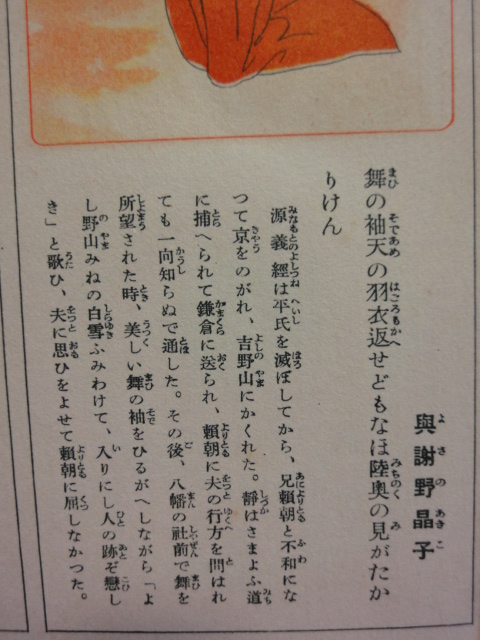 與謝野晶子
舞の袖天の羽衣返せどもなほ陸奥の見がたか
りけん
源義經は平氏を滅ぼしてから、兄頼朝と不和にな
つて京をのがれ、吉野山にかくれた。靜はさまよふ道
に捕へられて鎌倉に送られ、頼朝に夫の行方を問はれ
ても一向知らぬで通した。その後、八幡の社前で舞を
所望された時、美しい舞の袖をひるがへしながら「よ
し野山みねの白雪ふみわけて、入りにし人の跡ぞ戀し
き」と歌ひ、夫に思ひをよせて頼朝に屈しなかつた。